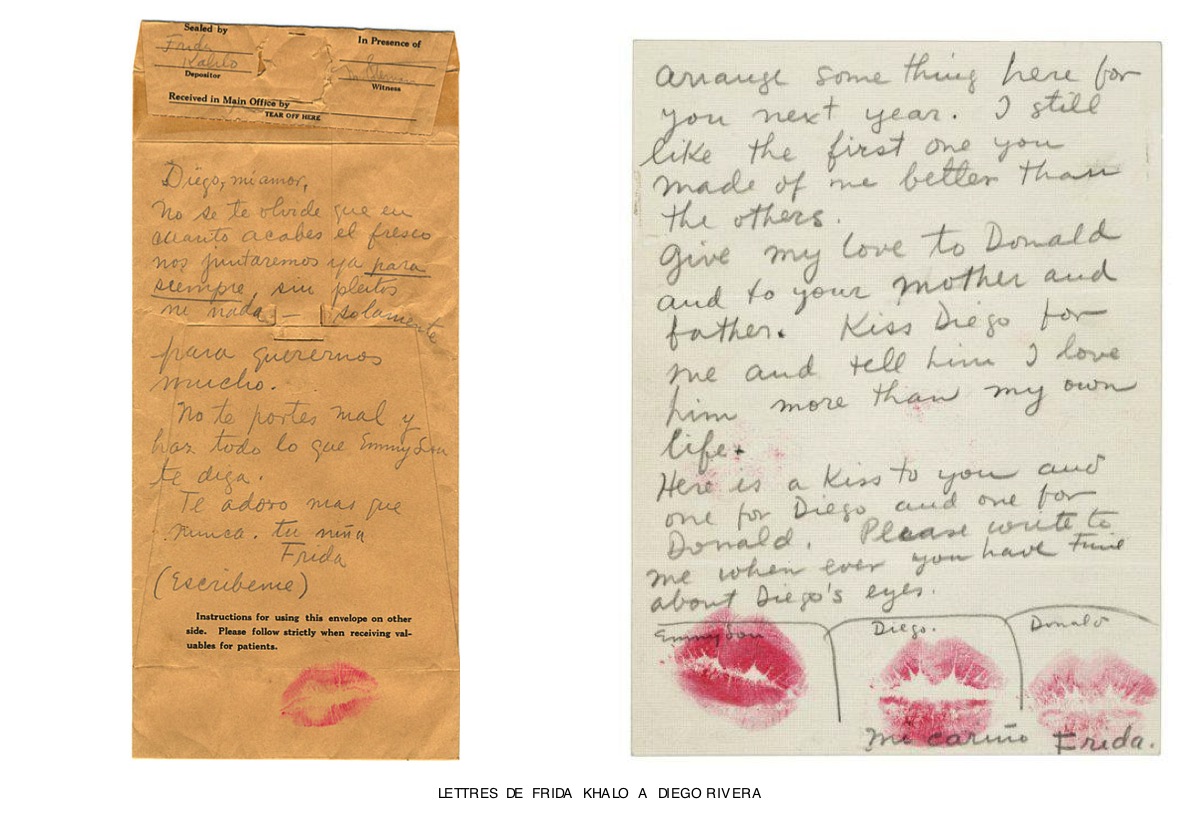 Sealed by
Frida
Kahlo
Depositor
In Presence of
Witness
Received in Main Office by
TEAR OFF HERE
Diego, mi amor,
No se te olvide que en
cuanto acabes el fresco
nos juntaremos ya para
siempre, sin pleitos
ni nada — solamente
para querernos
mucho.
No te portes mal y
haz todo lo que Emmy Lou
te diga.
Te adoro mas que
nunca. tu niña
Frida
(Escribeme)
Instructions for using this envelope on other
side. Please follow strictly when receiving val-
uables for patients.
arrange some thing here for
you next year. I still
like the first one you
made of me better than
the others.
Give my love to Donald
and to your mother and
father. Kiss Diego for
me and tell him I love
him more than my own
life.
Here is a Kiss to you and
one for Diego and one for
Donald. Please write to
me when ever you have time
about Diego's eyes.
Emmy Lou
Diego.
Donald
Mi cariño Frida.
LETTRES DE FRIDA KHALO A DIEGO RIVERA